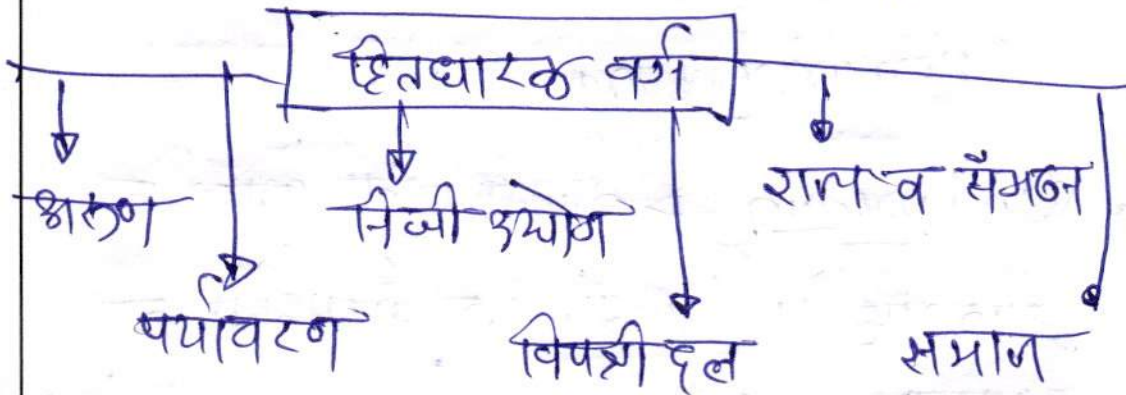 हितधारक वर्ग
अरुण
निजी उद्योग
राज्य व संगठन
पर्यावरण
विपक्षी दल
समाज